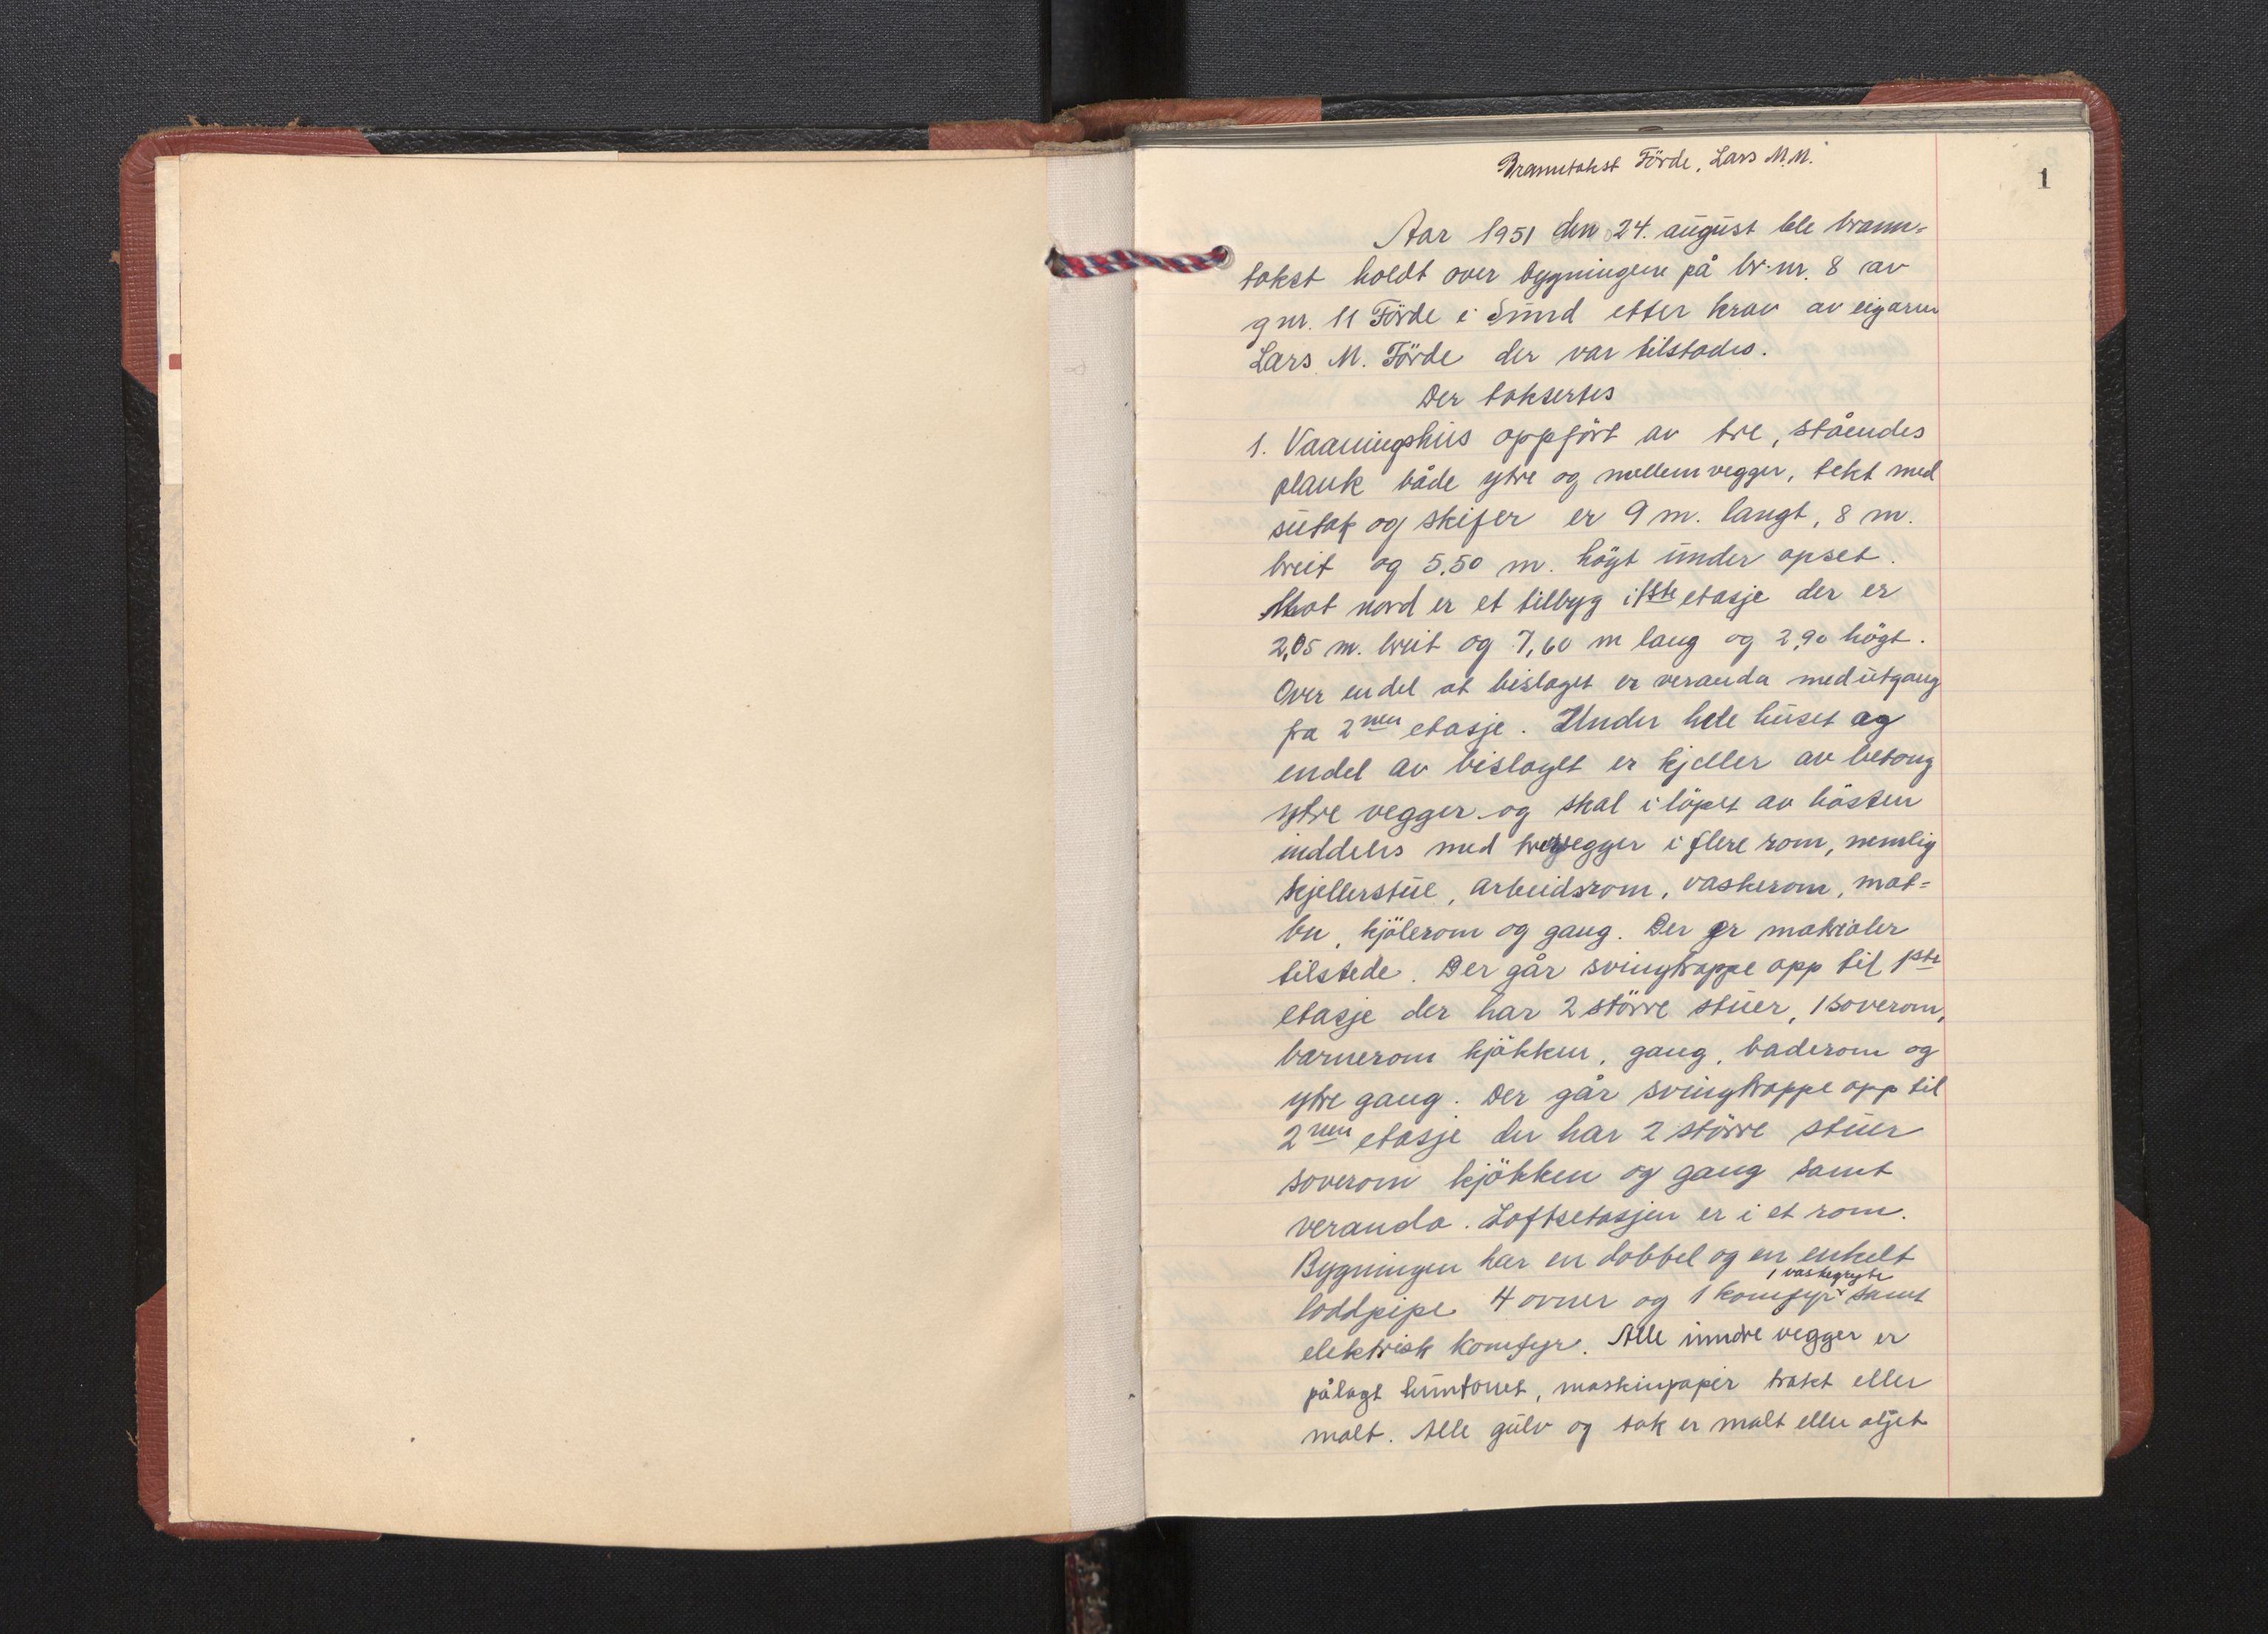 Branntakst Förde, Lars M.M.
1
Aar 1951 den 24. august ble brann-
takst holdt over bygningene på br.nr. 8 av
gnr. 11 Förde i Sund etter krav av eigaren
Lars M. Förde der var tilstades.
Der taksertes
1. Vaaningshus oppfört av tre, ståendes
plank både ytre og mellemvegger, tekt med
sutak og skifer er 9 m. langt, 8 m.
breit og 5.50 m. högt under opset.
Mot nord er et tilbyg i 1ste etasje der er
2,05 m. breit og 7,60 m lang og 2,90 högt.
Over endel at bislaget er veranda med utgang
fra 2nen etasje. Under hele huset og
endel av bislaget er kjeller av betong
ytre vegger og skal i löpet av hösten
inddeles med vegger i flere rom, nemlig
kjellerstue, arbeidsrom, vaskerom, mat-
bu, kjölerom og gang. Der er materialer
tilstede. Der går svingtrappe opp til 1ste
etasje der har 2 större stuer, 1 soverom,
barnerom kjökken, gang, baderom og
ytre gang. Der går svingtrappe opp til
2nen etasje der har 2 större stuer
soverom kjökken og gang samt
veranda. Loftsetasjen er i et rom.
Bygningen har en dobbel og en enkelt
1 vaskegryte
loddpipe 4 ovner og 1 komfyr samt
elektrisk komfyr. Alle inndre vegger er
pålagt huntonet, maskinpapir trakt eller
malt. Alle gulv og tak er malt eller oljet